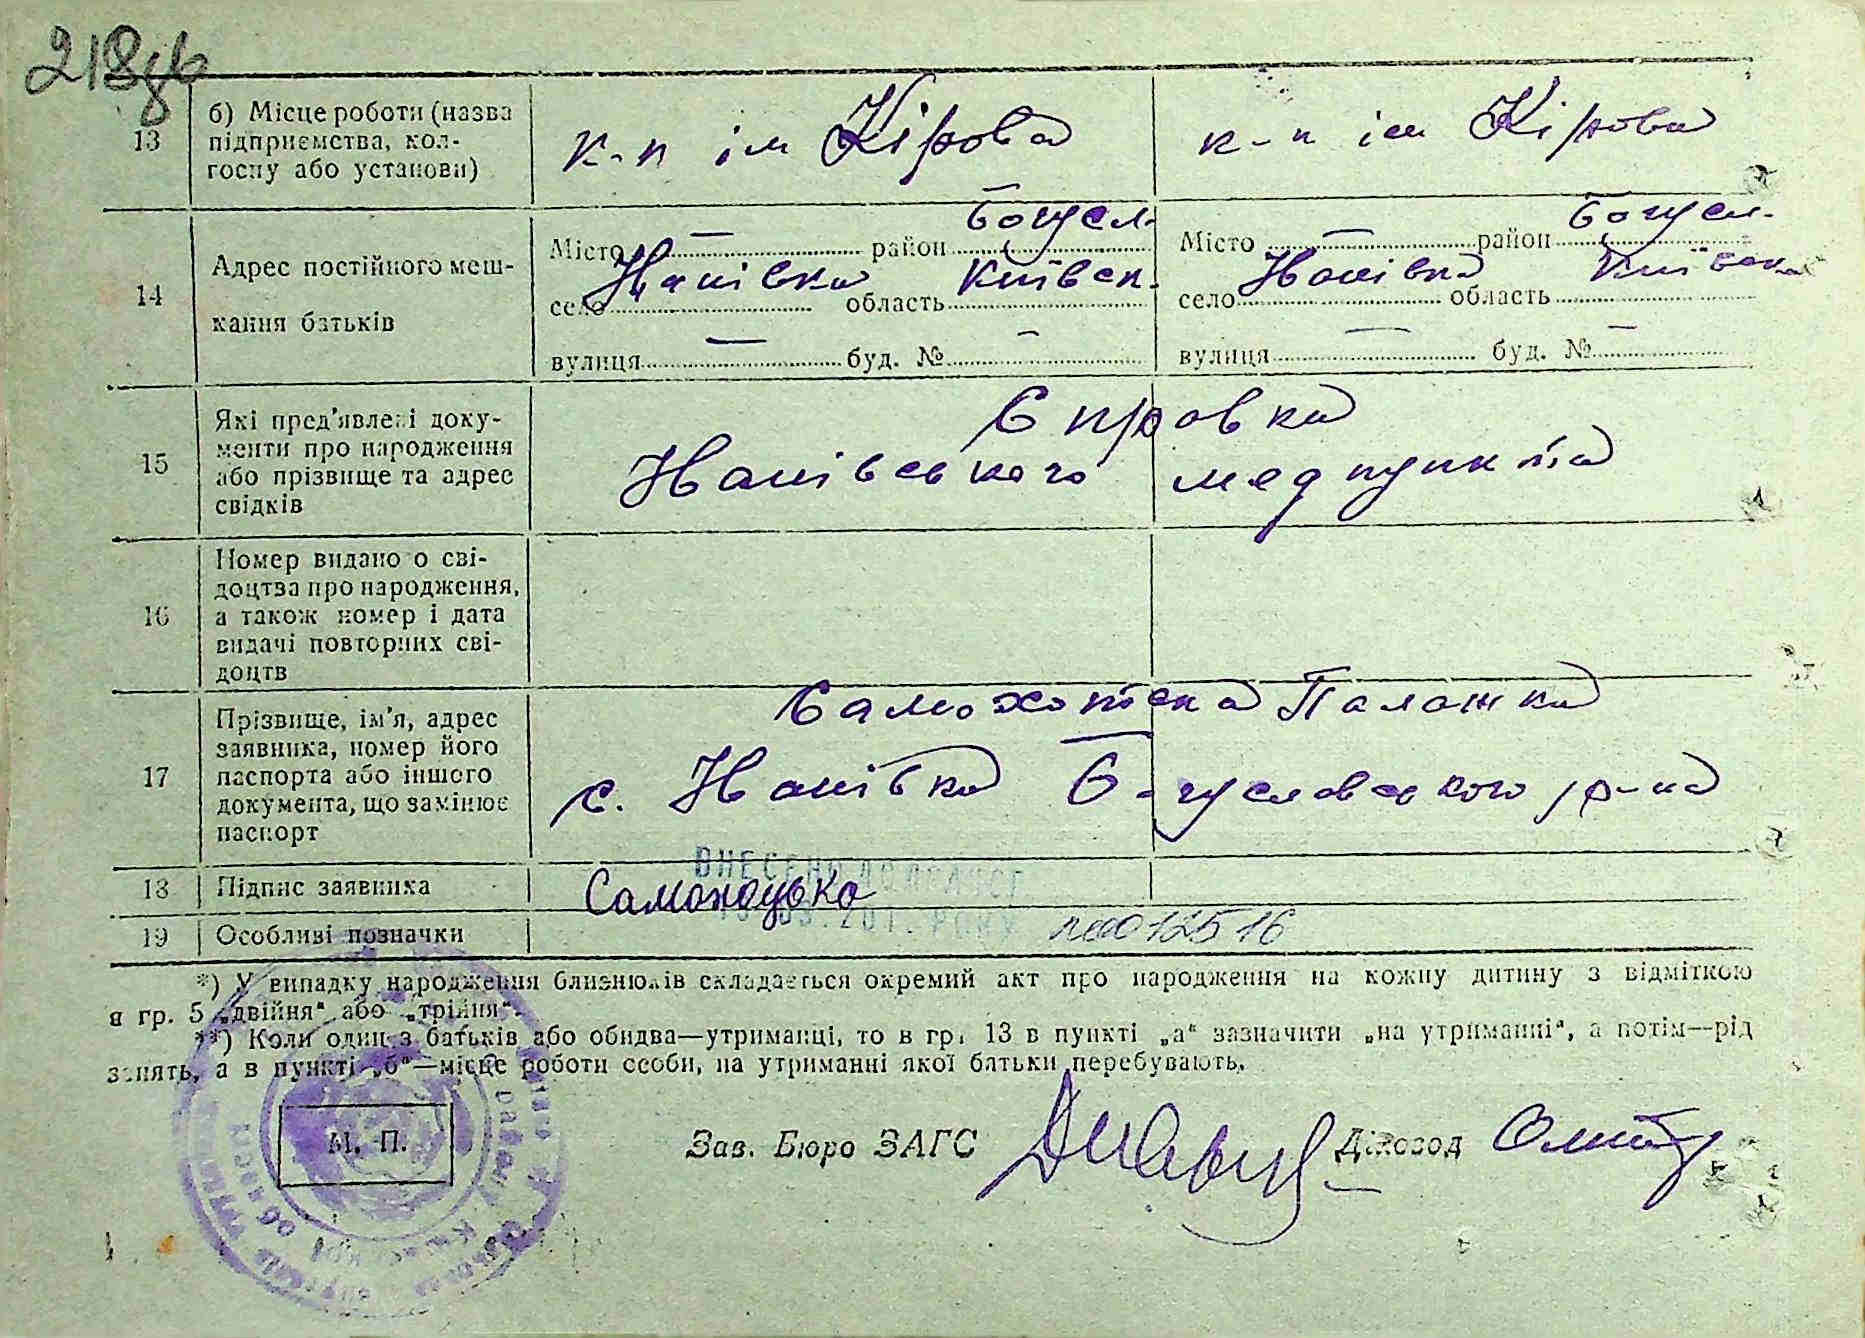 218зв
13 б) Місце роботи (назва
підприємства, кол-
госпу або установи)
к-п ім Кірова к-п ім Кірова
14 Адрес постійного меш-
кання батьків
Місто — район Богусл. Місто — район Богусл.
село Іванівка область Київськ. село Іванівка область Київська
вулиця — буд. № — вулиця — буд. № —
15 Які пред'явлені доку-
менти про народження
або прізвище та адрес
свідків
Справка
Іванівського медпункта
16 Номер видано о сві-
доцтва про народження,
а також номер і дата
видачі повторних сві-
доцтв
17 Прізвище, ім'я, адрес
заявника, номер його
паспорта або іншого
документа, що замінює
паспорт
Самохотска Палажка
с. Іванівка Богуславського р-на
ВНЕСЕНО ДО ДРАЦСГ
18 Підпис заявника Самохоцька
РОКУ
19 Особливі позначки 00012516
*) У випадку народження близнюків складається окремий акт про народження на кожну дитину з відміткою
в гр. 5 „двійня" або „трійня".
**) Коли один з батьків або обидва—утриманці, то в гр. 13 в пункті „а" зазначити „на утриманні", а потім—рід
занять, а в пункті „б"—місце роботи особи, на утриманні якої батьки перебувають.
М. П.
Зав. Бюро ЗАГС Діловод